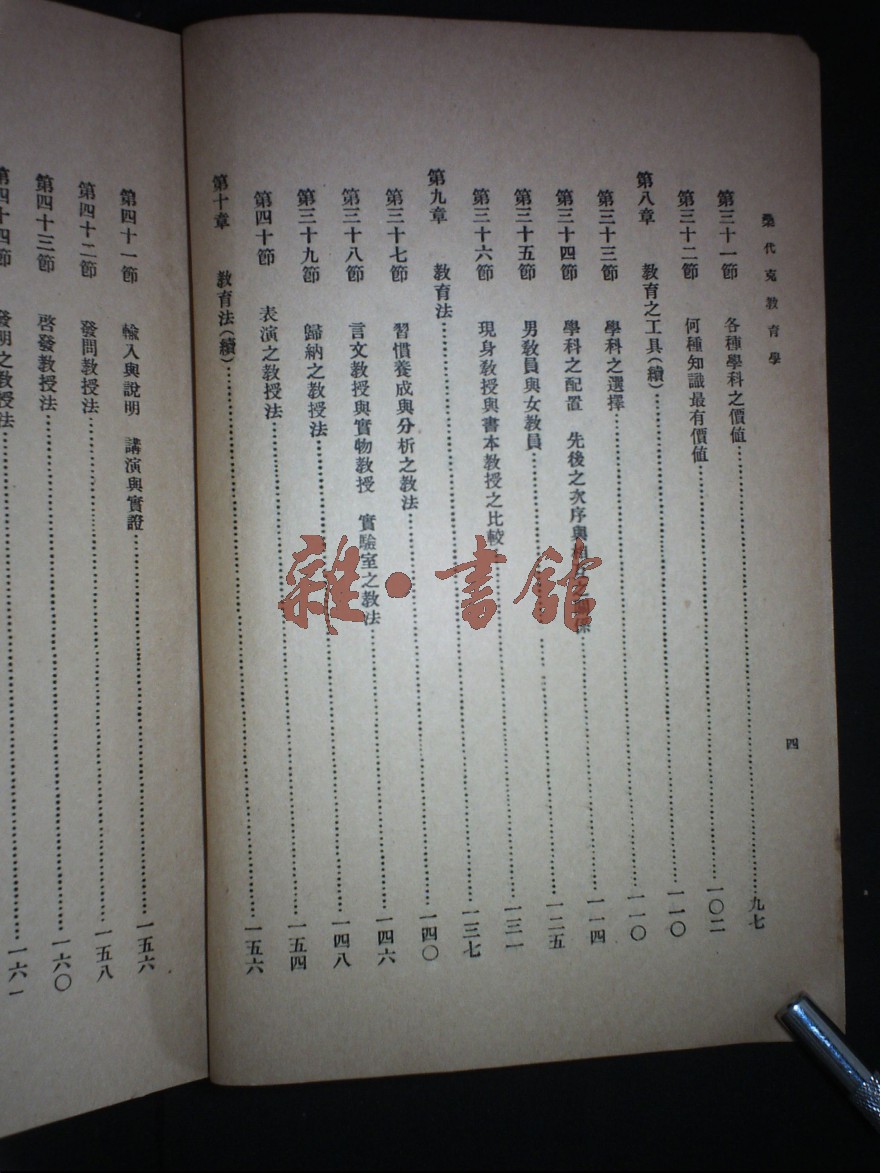 桑代克教育學
四
第三十一節 各種學科之價値……九七
第三十二節 何種知識最有價値……一〇二
第八章 教育之工具(續)……一一〇
第三十三節 學科之選擇……一一〇
第三十四節 學科之配置 先後之次序與係……一一四
第三十五節 男教員與女教員……一二五
第三十六節 現身教授與書本教授之比較……一三一
第九章 教育法……一三七
第三十七節 習慣養成與分析之教法……一四〇
第三十八節 言文教授與實物教授 實驗室之教法……一四六
第三十九節 歸納之教授法……一四八
第四十節 表演之教授法……一五四
第十章 教育法(續)……一五六
第四十一節 輸入與說明 講演與實證……一五六
第四十二節 發問教授法……一五八
第四十三節 啓發教授法……一六〇
第四十四節 發明之教授法……一六一
雜·書館